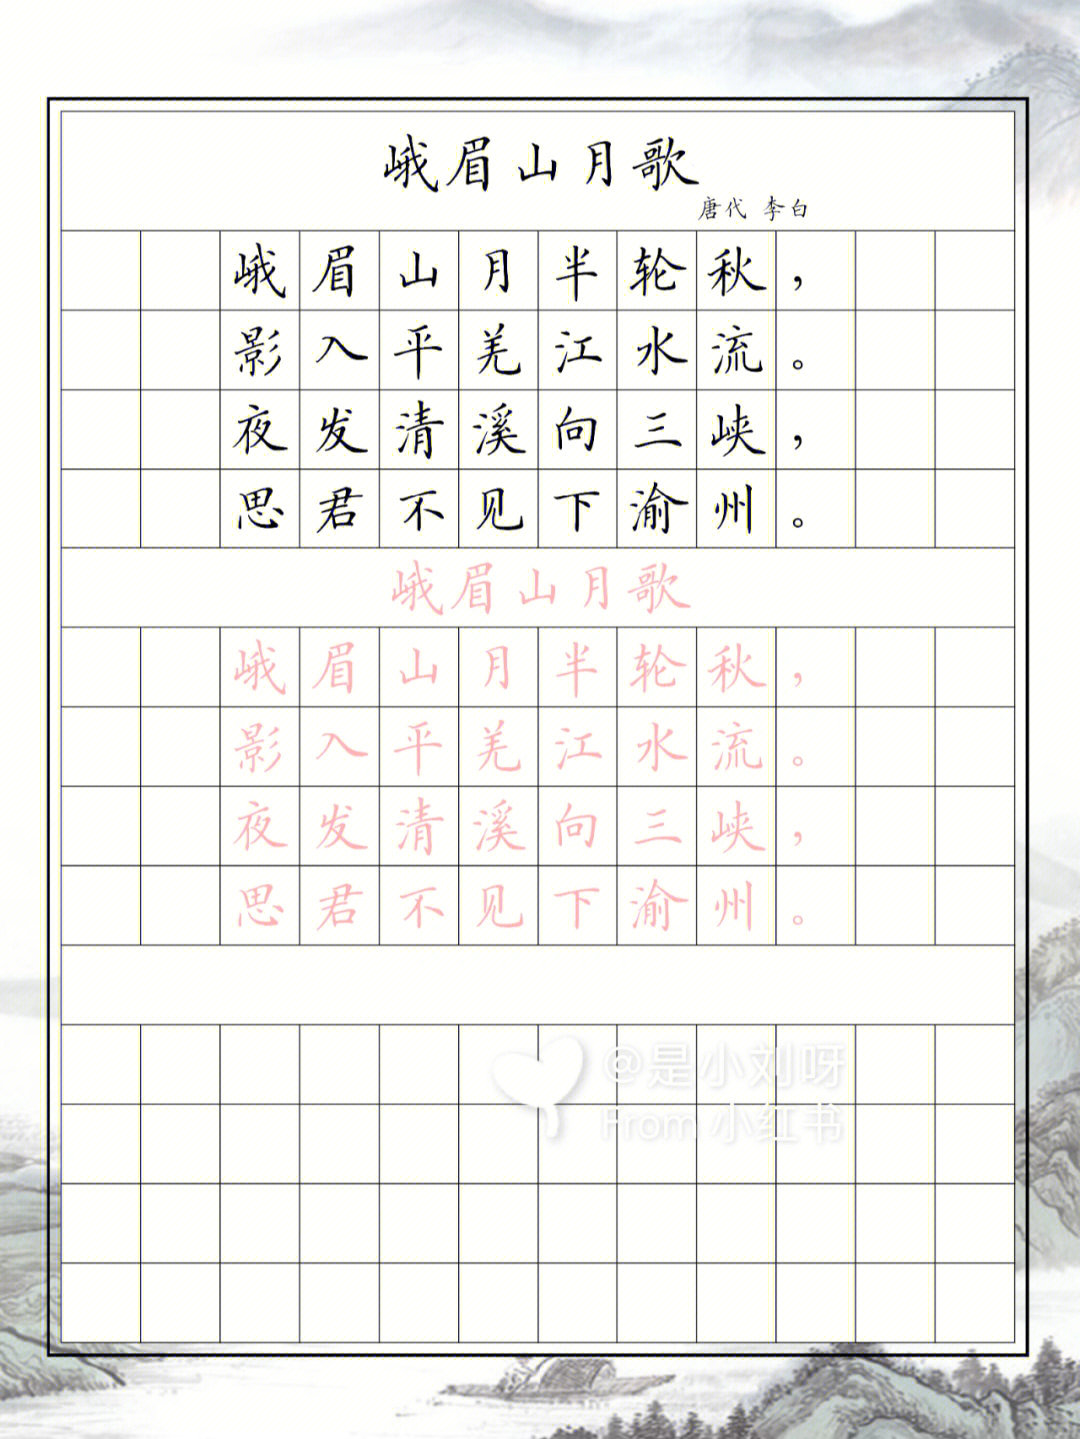 峨眉山月歌
唐代 李白
峨眉山月半轮秋，
影入平羌江水流。
夜发清溪向三峡，
思君不见下渝州。
峨眉山月歌
峨眉山月半轮秋，
影入平羌江水流。
夜发清溪向三峡，
思君不见下渝州。
@是小刘呀
From 小红书